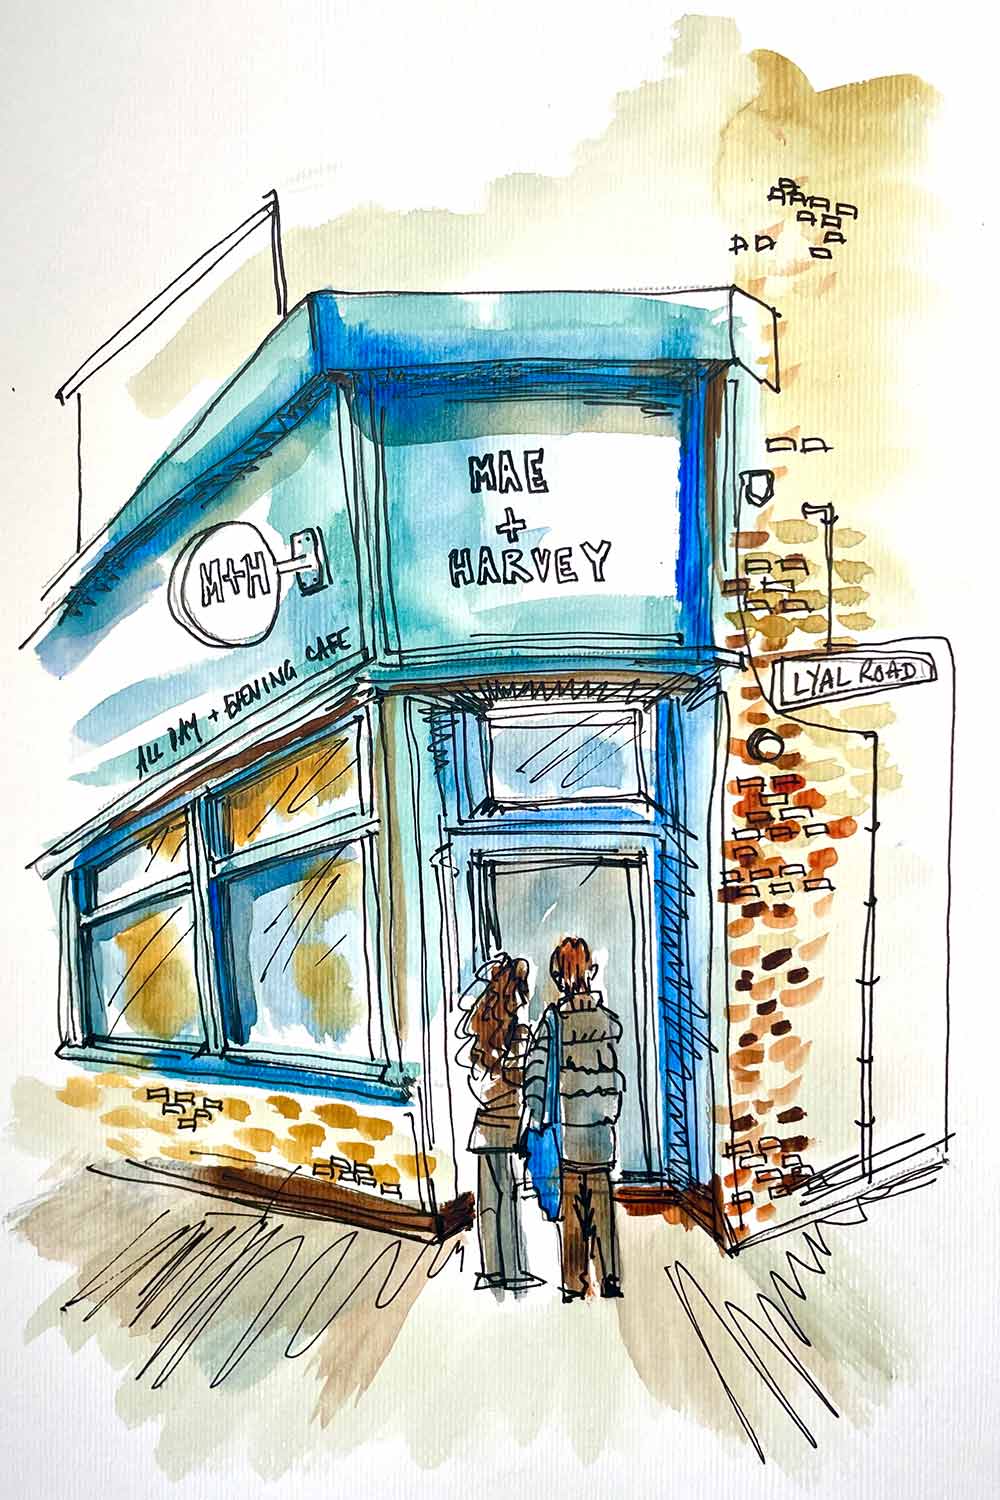 MAE
+
HARVEY
M+H
ALL DAY + EVENING CAFE
LYAL ROAD